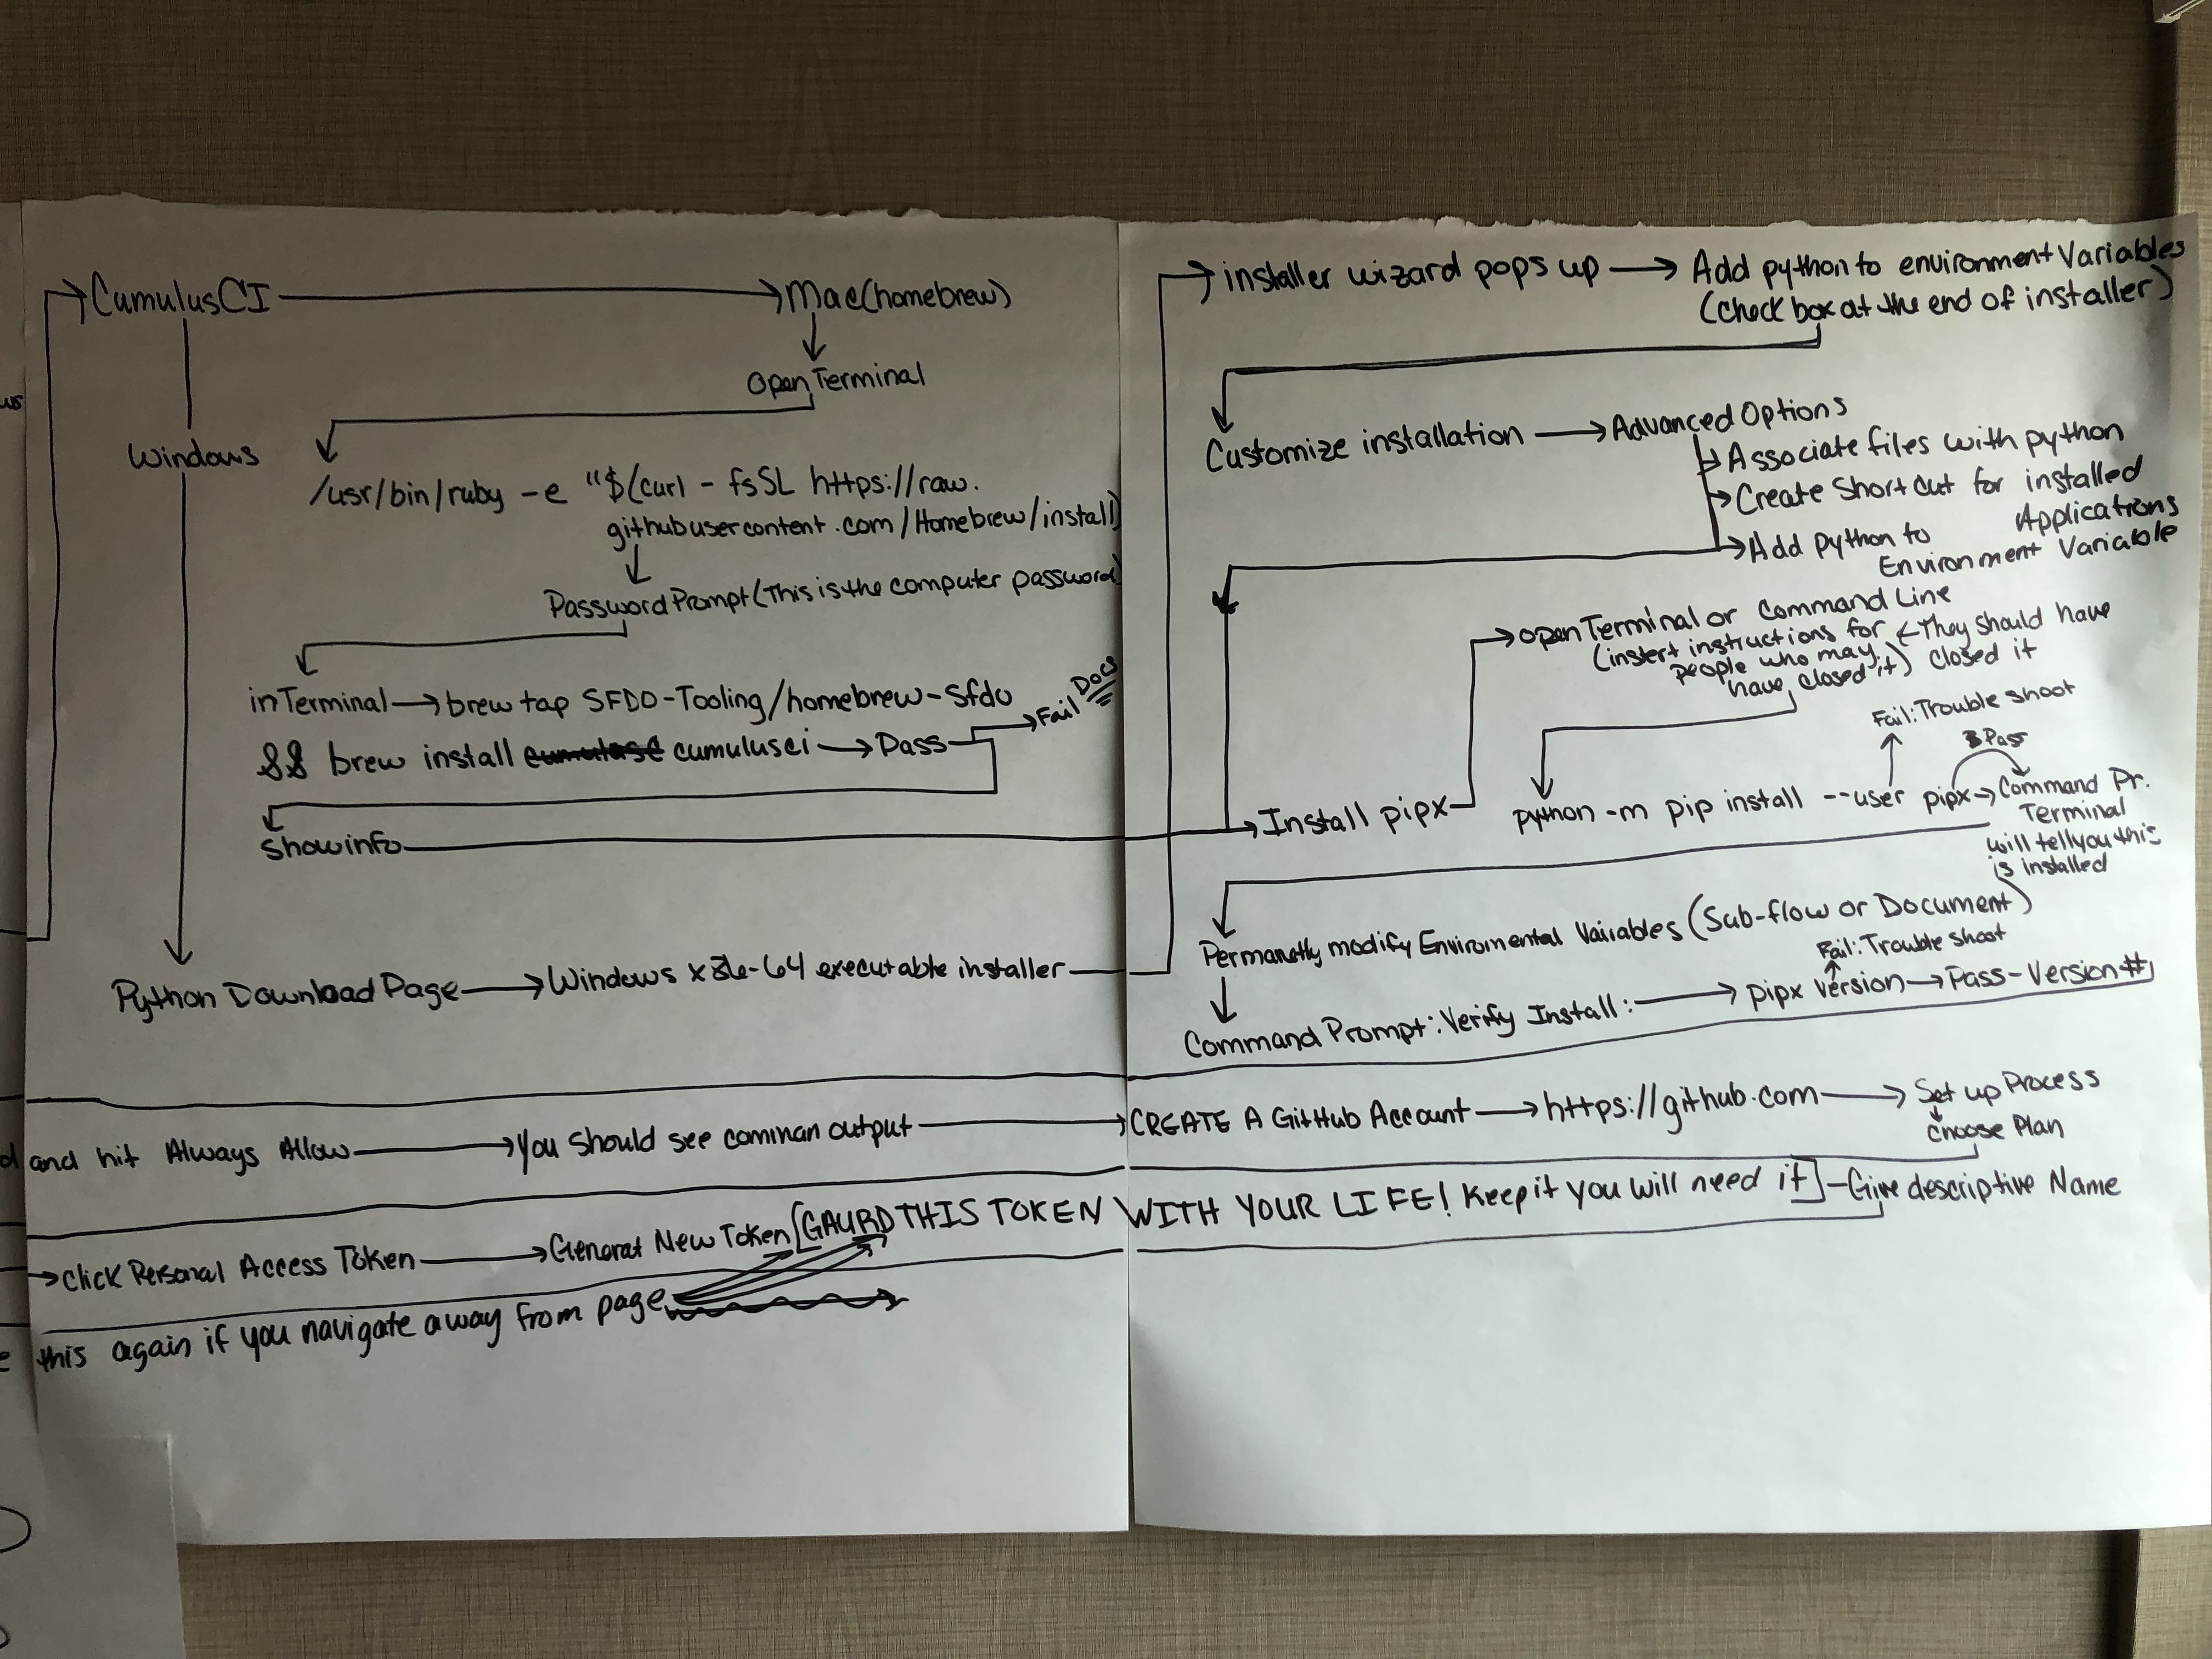 CumulusCI
Mac(homebrew)
Open Terminal
Windows
/usr/bin/ruby -e "$(curl -fsSL https://raw.
githubusercontent.com/Homebrew/install)
Password Prompt (This is the computer password)
in Terminal brew tap SFDO-Tooling/homebrew-sfdo
&& brew install cumulusci Pass Fail Docs
Show info
Python Download Page Windows x86-64 executable installer
installer wizard pops up Add python to environment Variables
(Check box at the end of installer)
Customize installation Advanced Options
Associate files with python
Create Short cut for installed
Applications
Add python to
Environment Variable
open Terminal or Command Line
(instert instructions for They should have
people who may closed it
have closed it)
Fail: Trouble shoot
Pass
Install pipx
python -m pip install --user pipx Command Pr.
Terminal
will tell you this
is installed
Permanetly modify Enviromental Vairables (Sub-flow or Document)
Fail: Trouble shoot
Command Prompt: Verify Install: pipx version Pass-Version #
and hit Always Allow You should see comman output CREATE A GitHub Account https://github.com Set up Process
choose Plan
click Personal Access Token Generat New Token [GAURD THIS TOKEN WITH YOUR LIFE! Keep it you will need it] - Give descriptive Name
this again if you navigate away from page